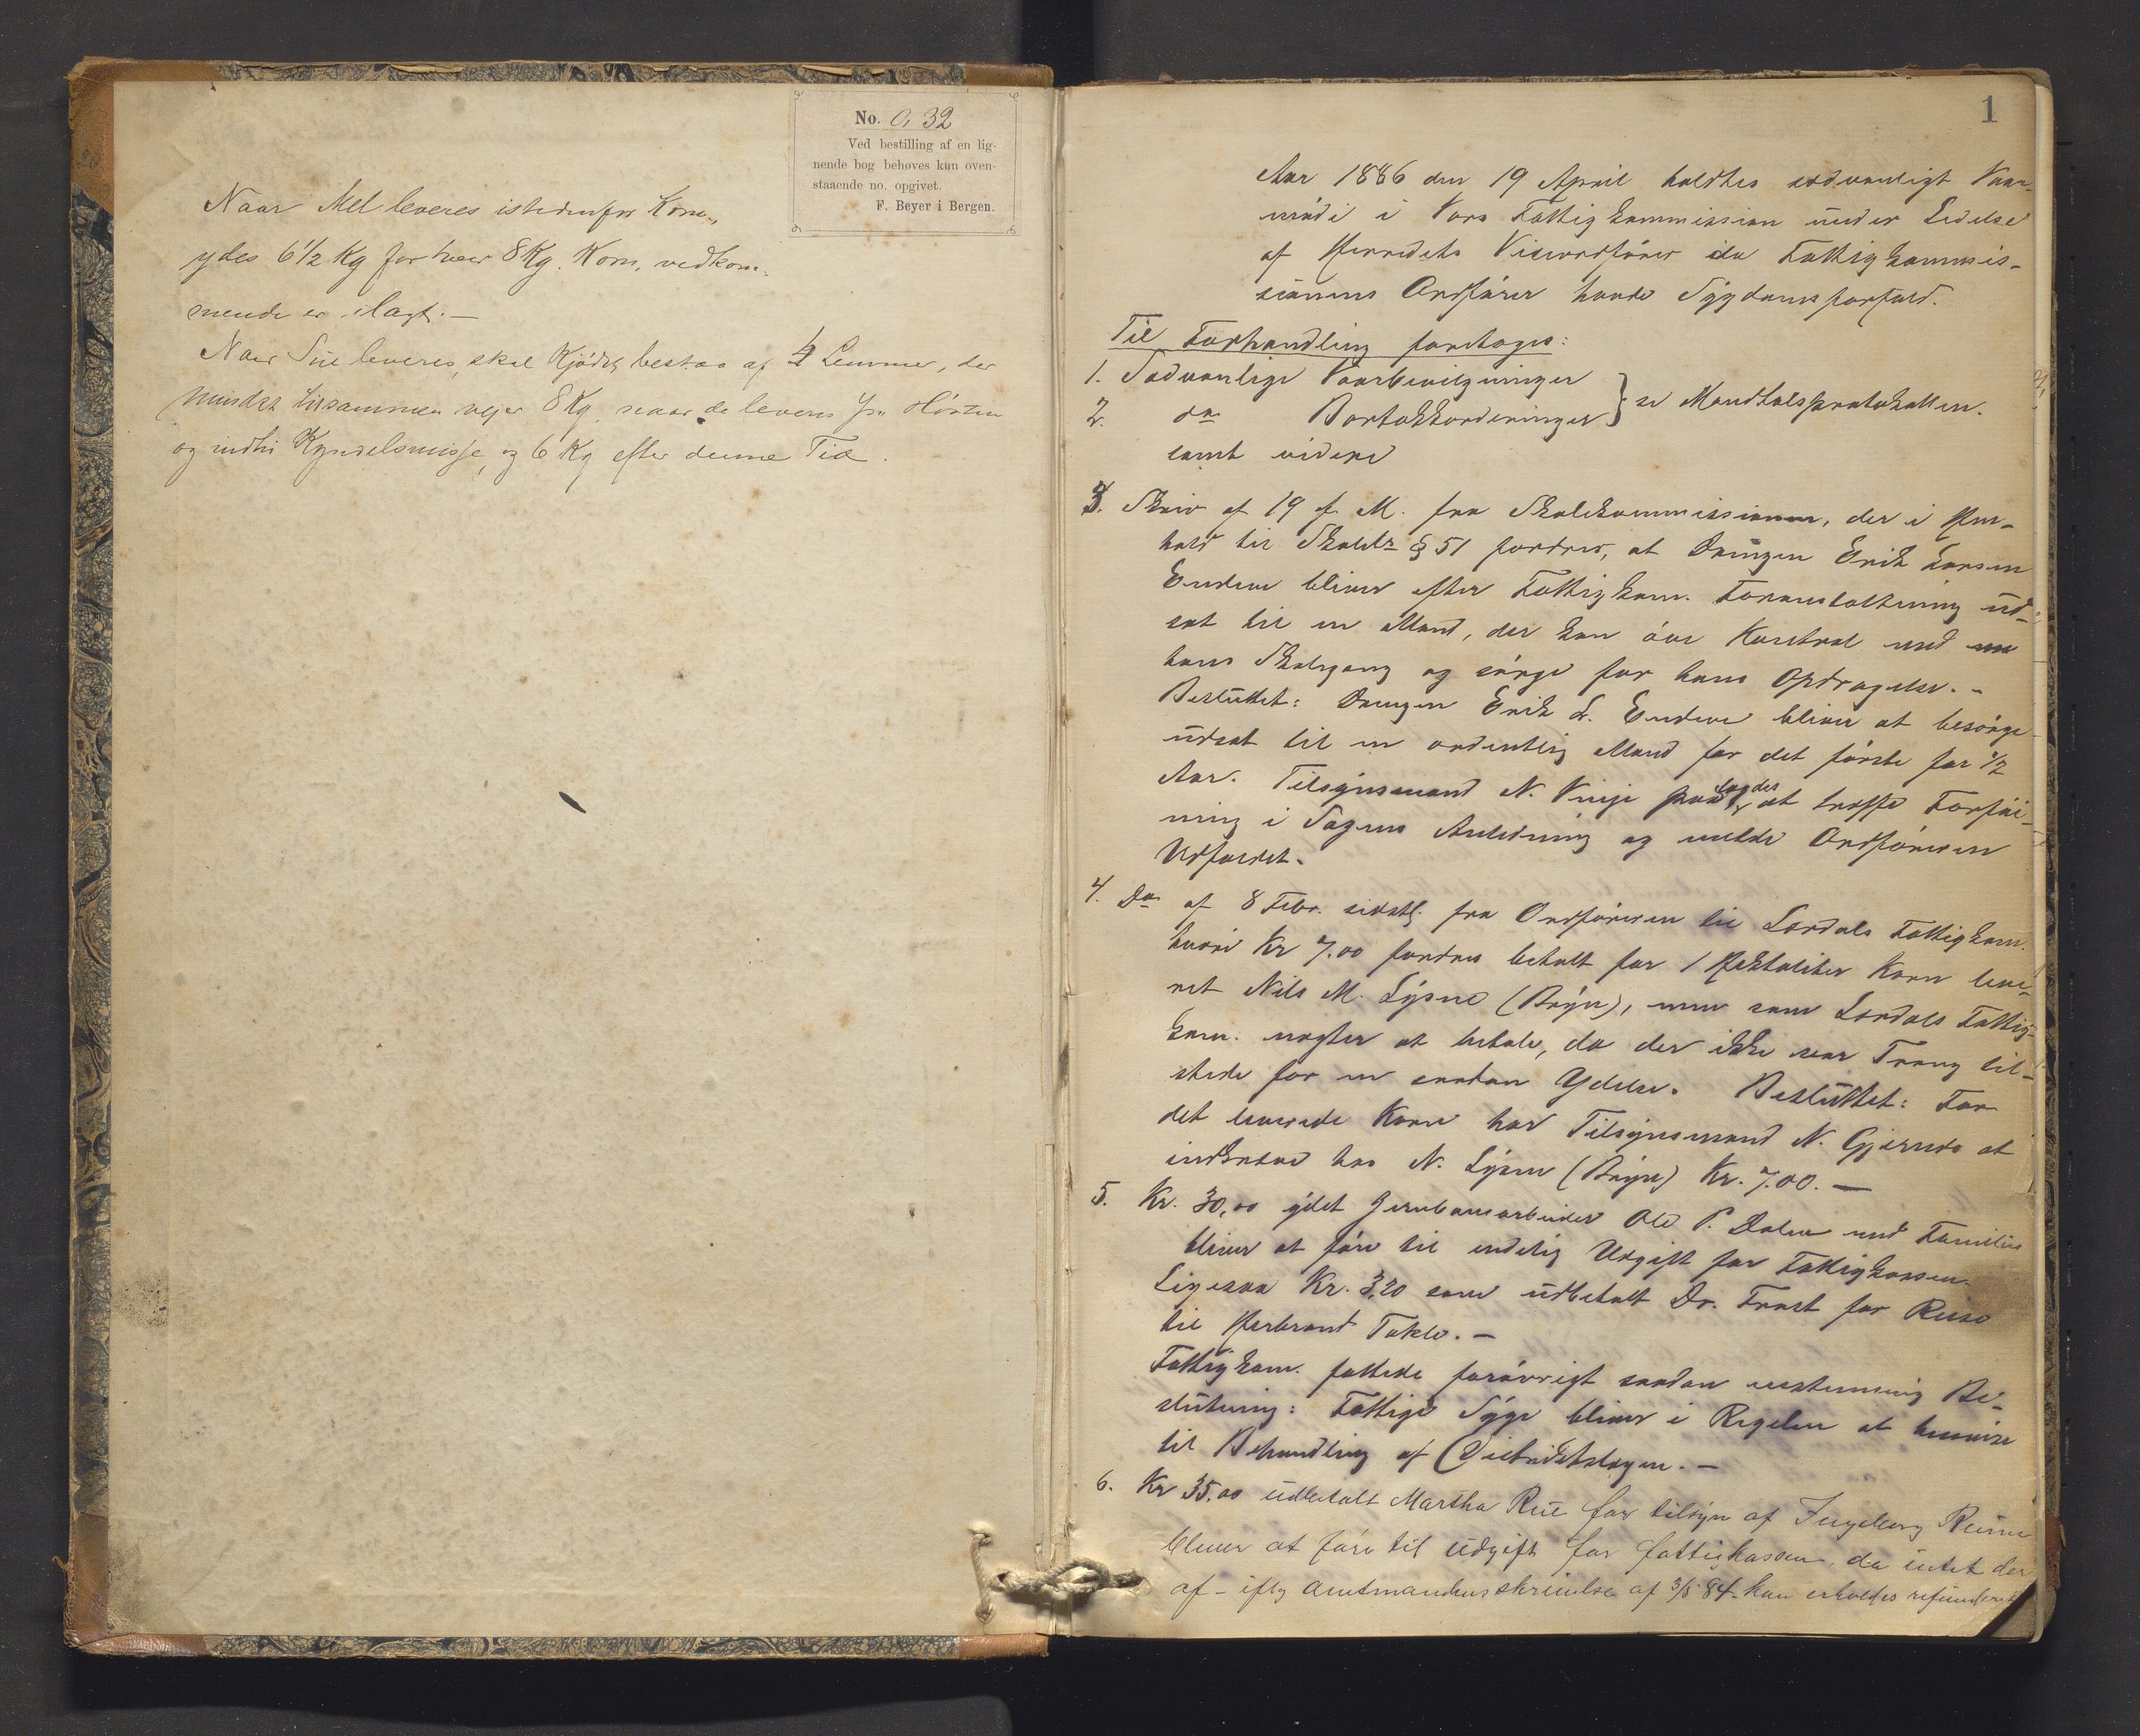 No. A, 32
Ved bestilling af en lig-
nende bog behøves kun oven-
staaende no. opgivet.
F. Beyer i Bergen.
Naar Mel leveres istedenfor Korn,
ydes 6 1/2 Kg for hver 8 Kg. Korn, vedkom-
mende er ilagt. —
Naar Sue leveres, skal Kjødet bestaa af 4 Lemmer, der
mindst tilsammen vejer 8 Kg, naar de leveres fra Hösten
og indtil Kyndelsmisse, og 6 Kg efter denne Tid.
1
Aar 1886 den 19 April holdtes sædvanligt Vaar-
möde i Vors Fattigkommission under Ledelse
af Herredets Viceordförer da Fattigkommis-
sionens Ordförer havde Sygdomsforfald.
Til Forhandling foretoges:
1. Sædvanlige Vaarbevilgninger
2. do Bortakkorderinger } se Mandtalsprotokollen.
samt videre
3. Skriv af 19 f. M. fra Skolekommissionen, der i Hen-
hold til Skolel. § 51 fordrer, at Drengen Erik Larsen
Endeve bliver efter Fattigkom. Foranstaltning ud-
sat til en Mand, der kan öve Kontrol med
hans Skolegang og sörge for hans Opdragelse. -
Besluttet: Drengen Erik L. Endeve bliver at besörge
udsat til en ordentlig Mand for det förste for 1/2
Aar. Tilsynsmand N. Vinje paalagdes at træffe Forföi-
ning i Sagens Anledning og melde Ordföreren
Udfaldet.
4. Do af 8 Febr. sidstl. fra Ordföreren til Lærdals Fattigkom.
hvori Kr 7.00 fordres betalt for 1 Hektoliter Korn leve-
ret Nils M. Lysne (Bryn), men som Lærdals Fattig-
kom. nægter at betale, da der ikke var Trang til-
stede for en saadan Ydelse. Besluttet: For
det leverede Korn har Tilsynsmand N. Gjerme at
indkræve hos N. Lysne (Bryn) Kr. 7.00. —
5. Kr. 30,00 ydet Jernbanearbeider Ole P. Dalen med Familie
bliver at före til endelig Udgift for Fattigkassen.
Ligesaa Kr. 3,20 som udbetalt Dr. Frost for Reise
til Herbrand Takle. —
Fattigkom. fattede forövrigt saadan enstemmig Be-
slutning: Fattige Syge bliver i Regelen at henvise
til Behandling af Distriktslægen. —
6. Kr 35.00 udbetalt Martha Rue for tilsyn af Ingeborg
bliver at före til udgift for fattikassen da intet der
af - iflg Amtmandens skrivelse af 3/5 84 - kan erholdes refunderet